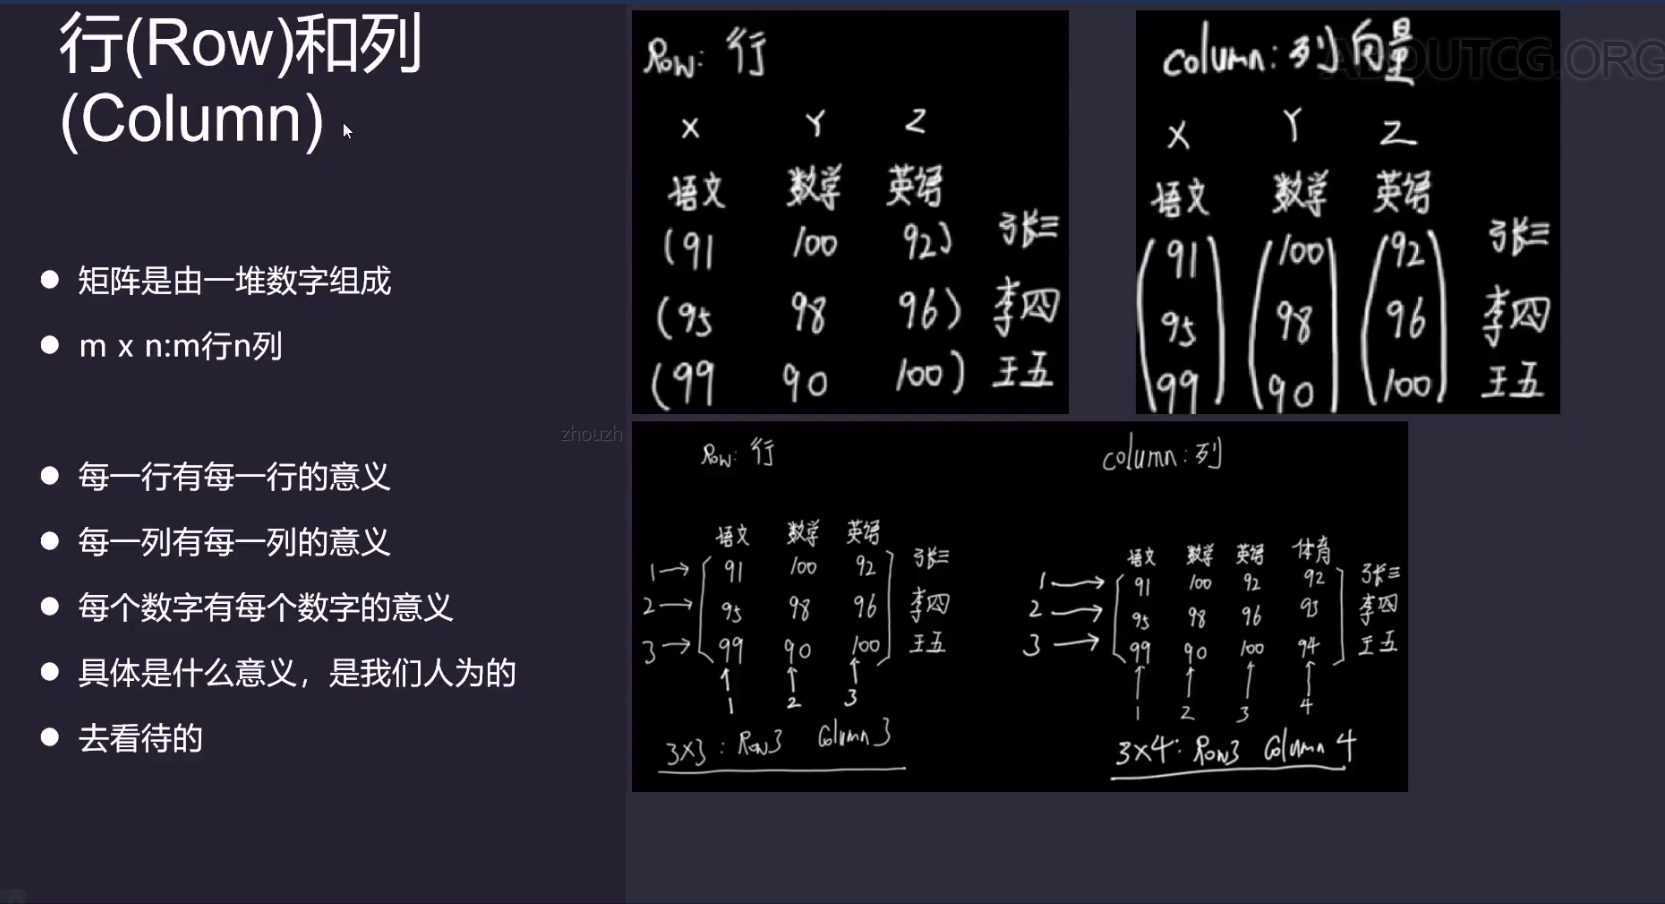 行(Row)和列
(Column)
矩阵是由一堆数字组成
m x n:m行n列
每一行有每一行的意义
每一列有每一列的意义
每个数字有每个数字的意义
具体是什么意义，是我们人为的
去看待的
zhouzh
Row: 行
X Y Z
语文 数学 英语
(91 100 92) 张三
(95 98 96) 李四
(99 90 100) 王五
column: 列向量
ABOUTCG.ORG
X Y Z
语文 数学 英语
91 100 92 张三
95 98 96 李四
99 90 100 王五
Row: 行
语文 数学 英语
1 → 91 100 92 张三
2 → 95 98 96 李四
3 → 99 90 100 王五
1 2 3
3X3 : Row3 Column 3
column: 列
语文 数学 英语 体育
1 → 91 100 92 92 张三
2 → 95 98 96 93 李四
3 → 99 90 100 94 王五
1 2 3 4
3X4: Row3 Column 4